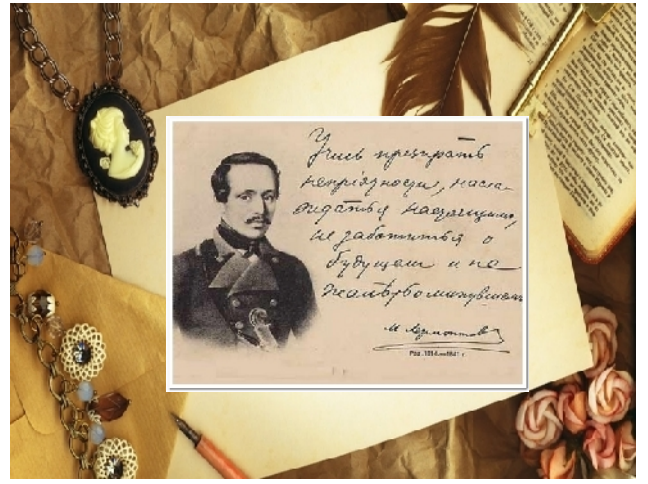 Учись презирать
непріятности, насла-
ждаться настоящимъ,
не заботиться о
будущем и не
жалеть о минувшем
М. Лермонтов
Род. 1814—1841 г.